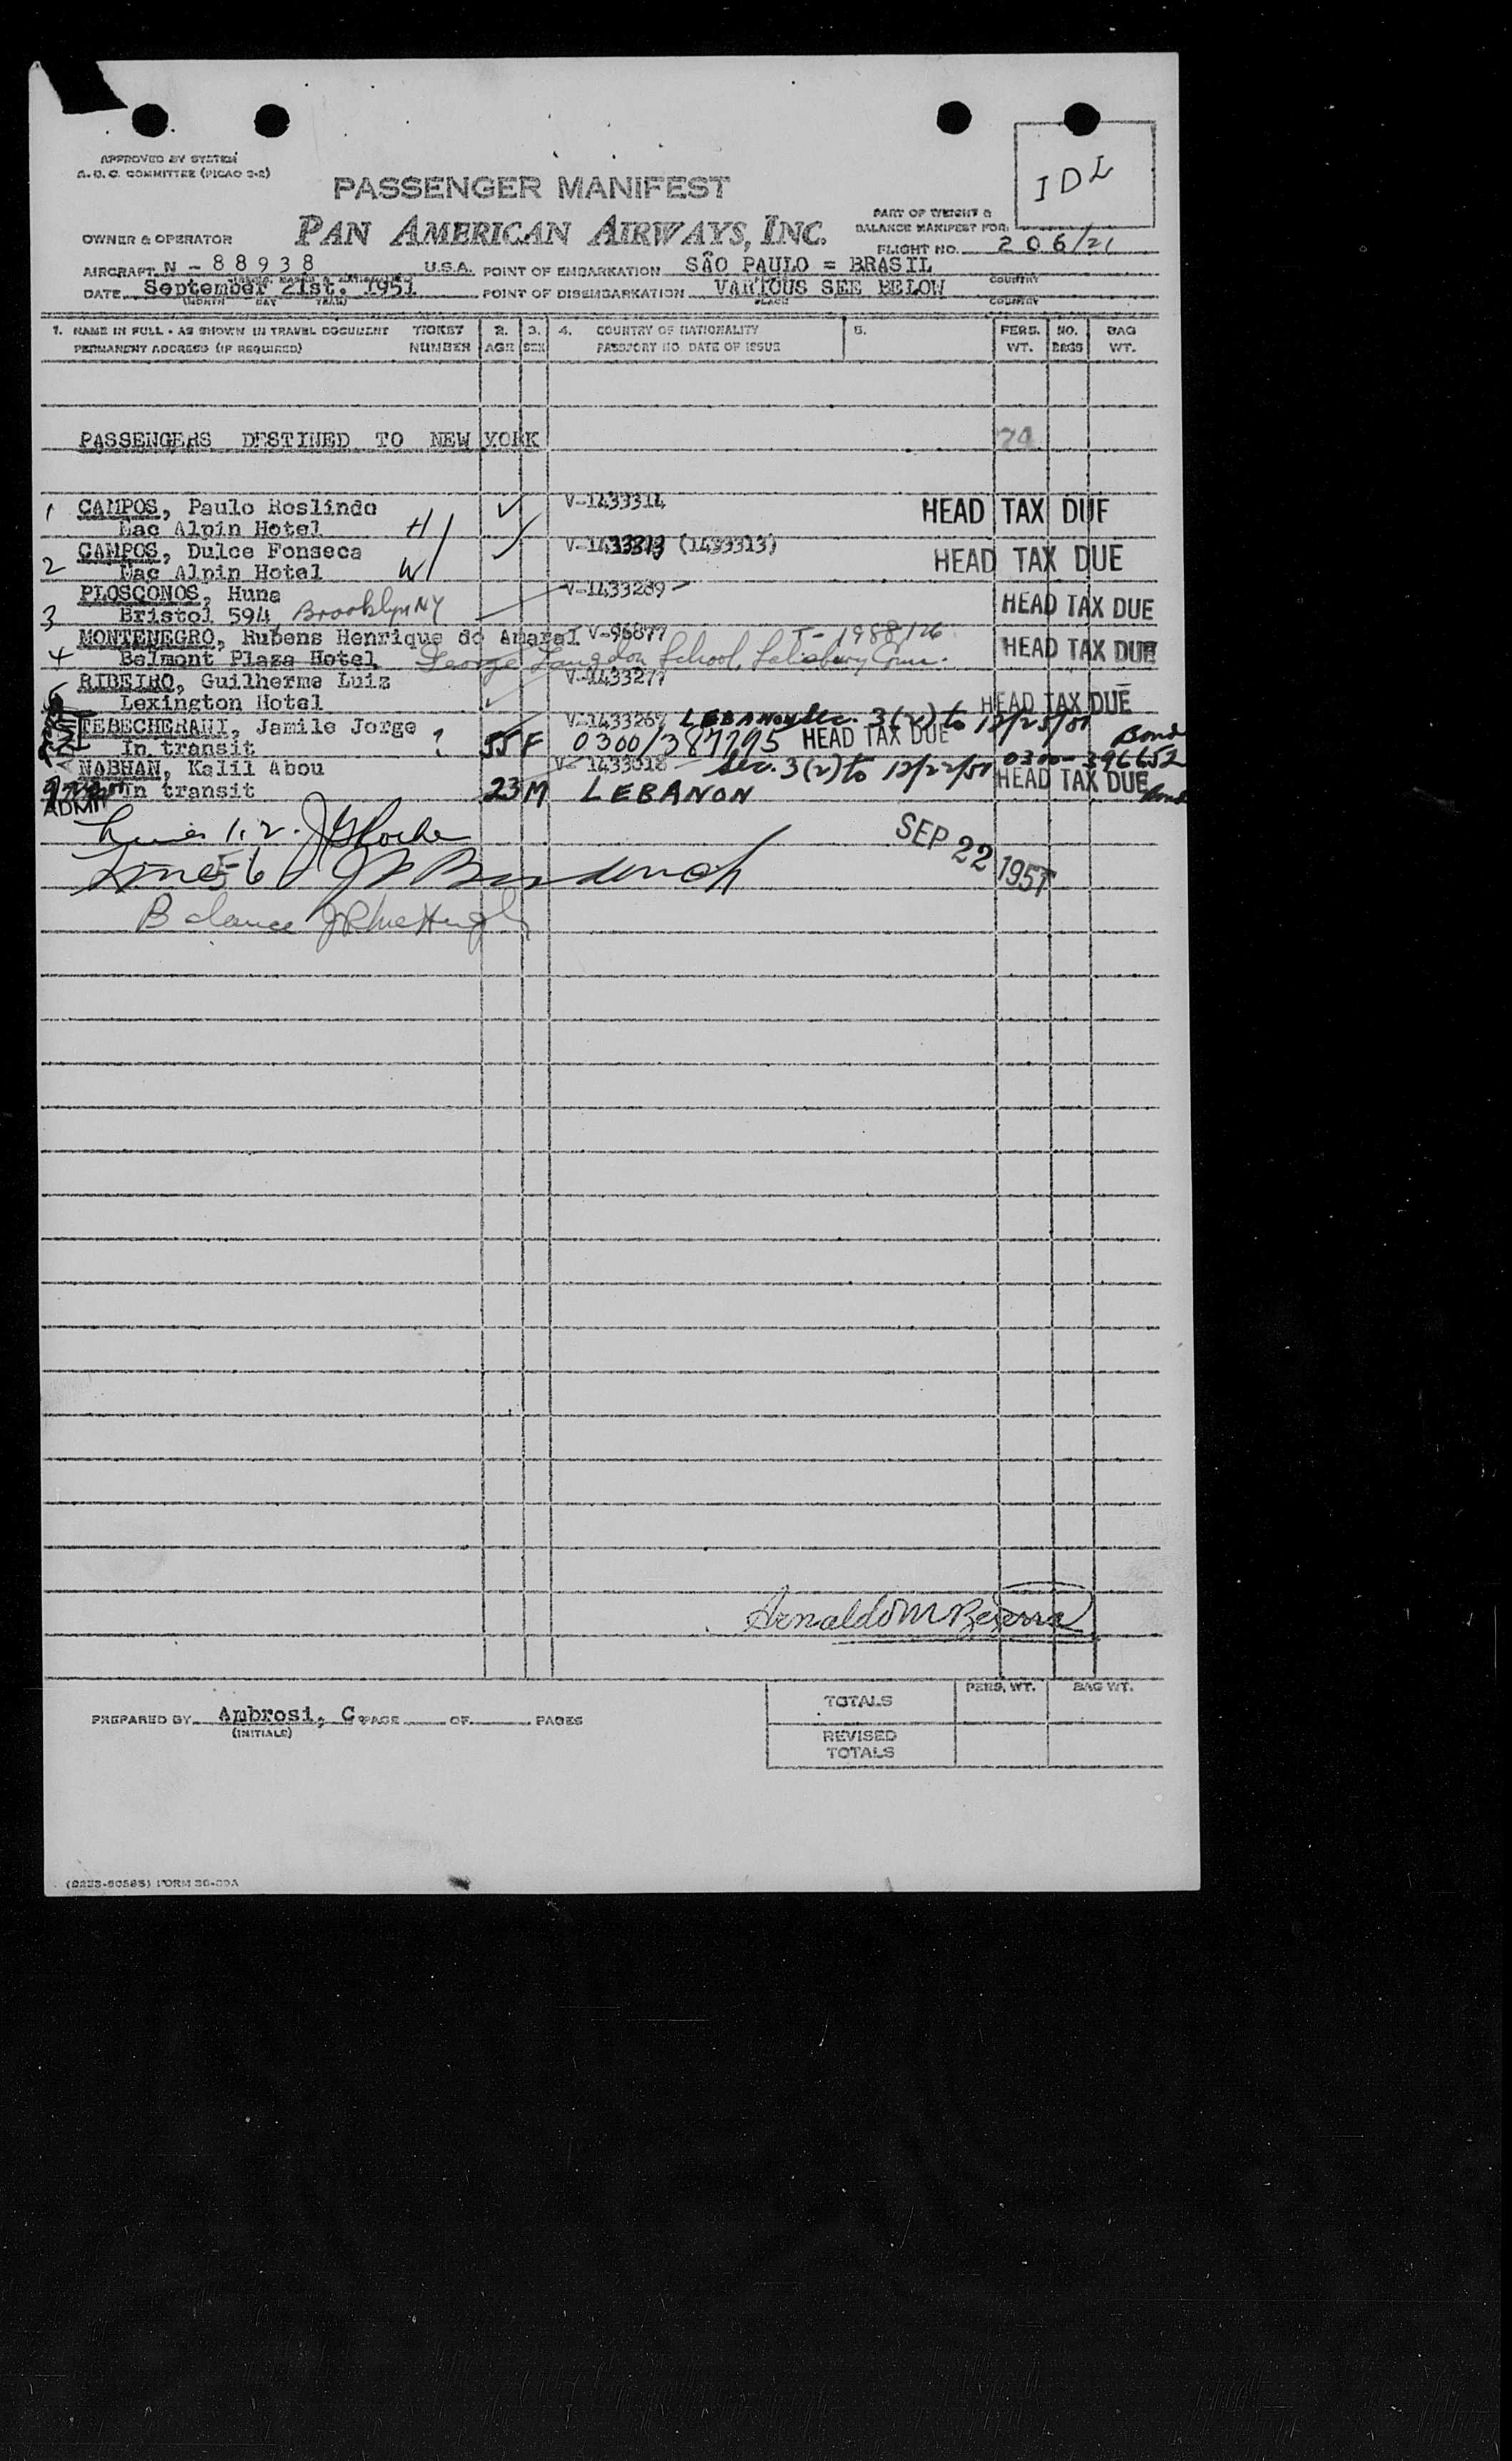 APPROVED BY SYSTEM
A.O.C. COMMITTEE (PICAO 3-2)
IDL
PASSENGER MANIFEST
PART OF WEIGHT &
BALANCE MANIFEST FOR:
OWNER & OPERATOR PAN AMERICAN AIRWAYS, INC.
FLIGHT NO. 206/21
AIRCRAFT N - 88938 U.S.A. POINT OF EMBARKATION SÃO PAULO = BRASIL COUNTRY
DATE September 21st. 1951 POINT OF DISEMBARKATION VARIOUS SEE BELOW
(MONTH DAY YEAR) PLACE COUNTRY
1. NAME IN FULL - AS SHOWN IN TRAVEL DOCUMENT TICKET 2. 3. 4. COUNTRY OF NATIONALITY 5. PERS. NO. BAG
PERMANENT ADDRESS (IF REQUIRED) NUMBER AGE SEX PASSPORT NO. DATE OF ISSUE WT. BAGS WT.
PASSENGERS DESTINED TO NEW YORK
1 CAMPOS, Paulo Roslindo V-1433314 HEAD TAX DUE
Mac Alpin Hotel H
CAMPOS, Dulce Fonseca (1433313) HEAD TAX DUE
2 Mac Alpin Hotel W
PLOSCONOS, Huna V-1433289 HEAD TAX DUE
3 Bristol 594, Brooklyn NY
MONTENEGRO, Rubens Henrique do Amaral V-96877 I-1988126 HEAD TAX DUE
4 Belmont Plaza Hotel George Langdon School, Salisbury Conn.
RIBEIRO, Guilherme Luiz V-1433277
Lexington Hotel HEAD TAX DUE
TEBECHERANI, Jamile Jorge V-1433269 LEBANON Sec. 3(2) to 12/23/51 Bond
In transit ? 55 F 0300/387795 HEAD TAX DUE
NABHAN, Kalil Abou V-1433018 Sec. 3(2) to 12/22/51 0300-396652
In transit 23 M LEBANON HEAD TAX DUE Bond
ADMIT
Lines 1.2. J Roche
SEP 22 1951
Lines 5-6
Balance J R McHugh
Arnaldo M Bezerra
PREPARED BY Ambrosi, C. PAGE OF PAGES
(INITIALS)
TOTALS PERS. WT. BAG WT.
REVISED
TOTALS